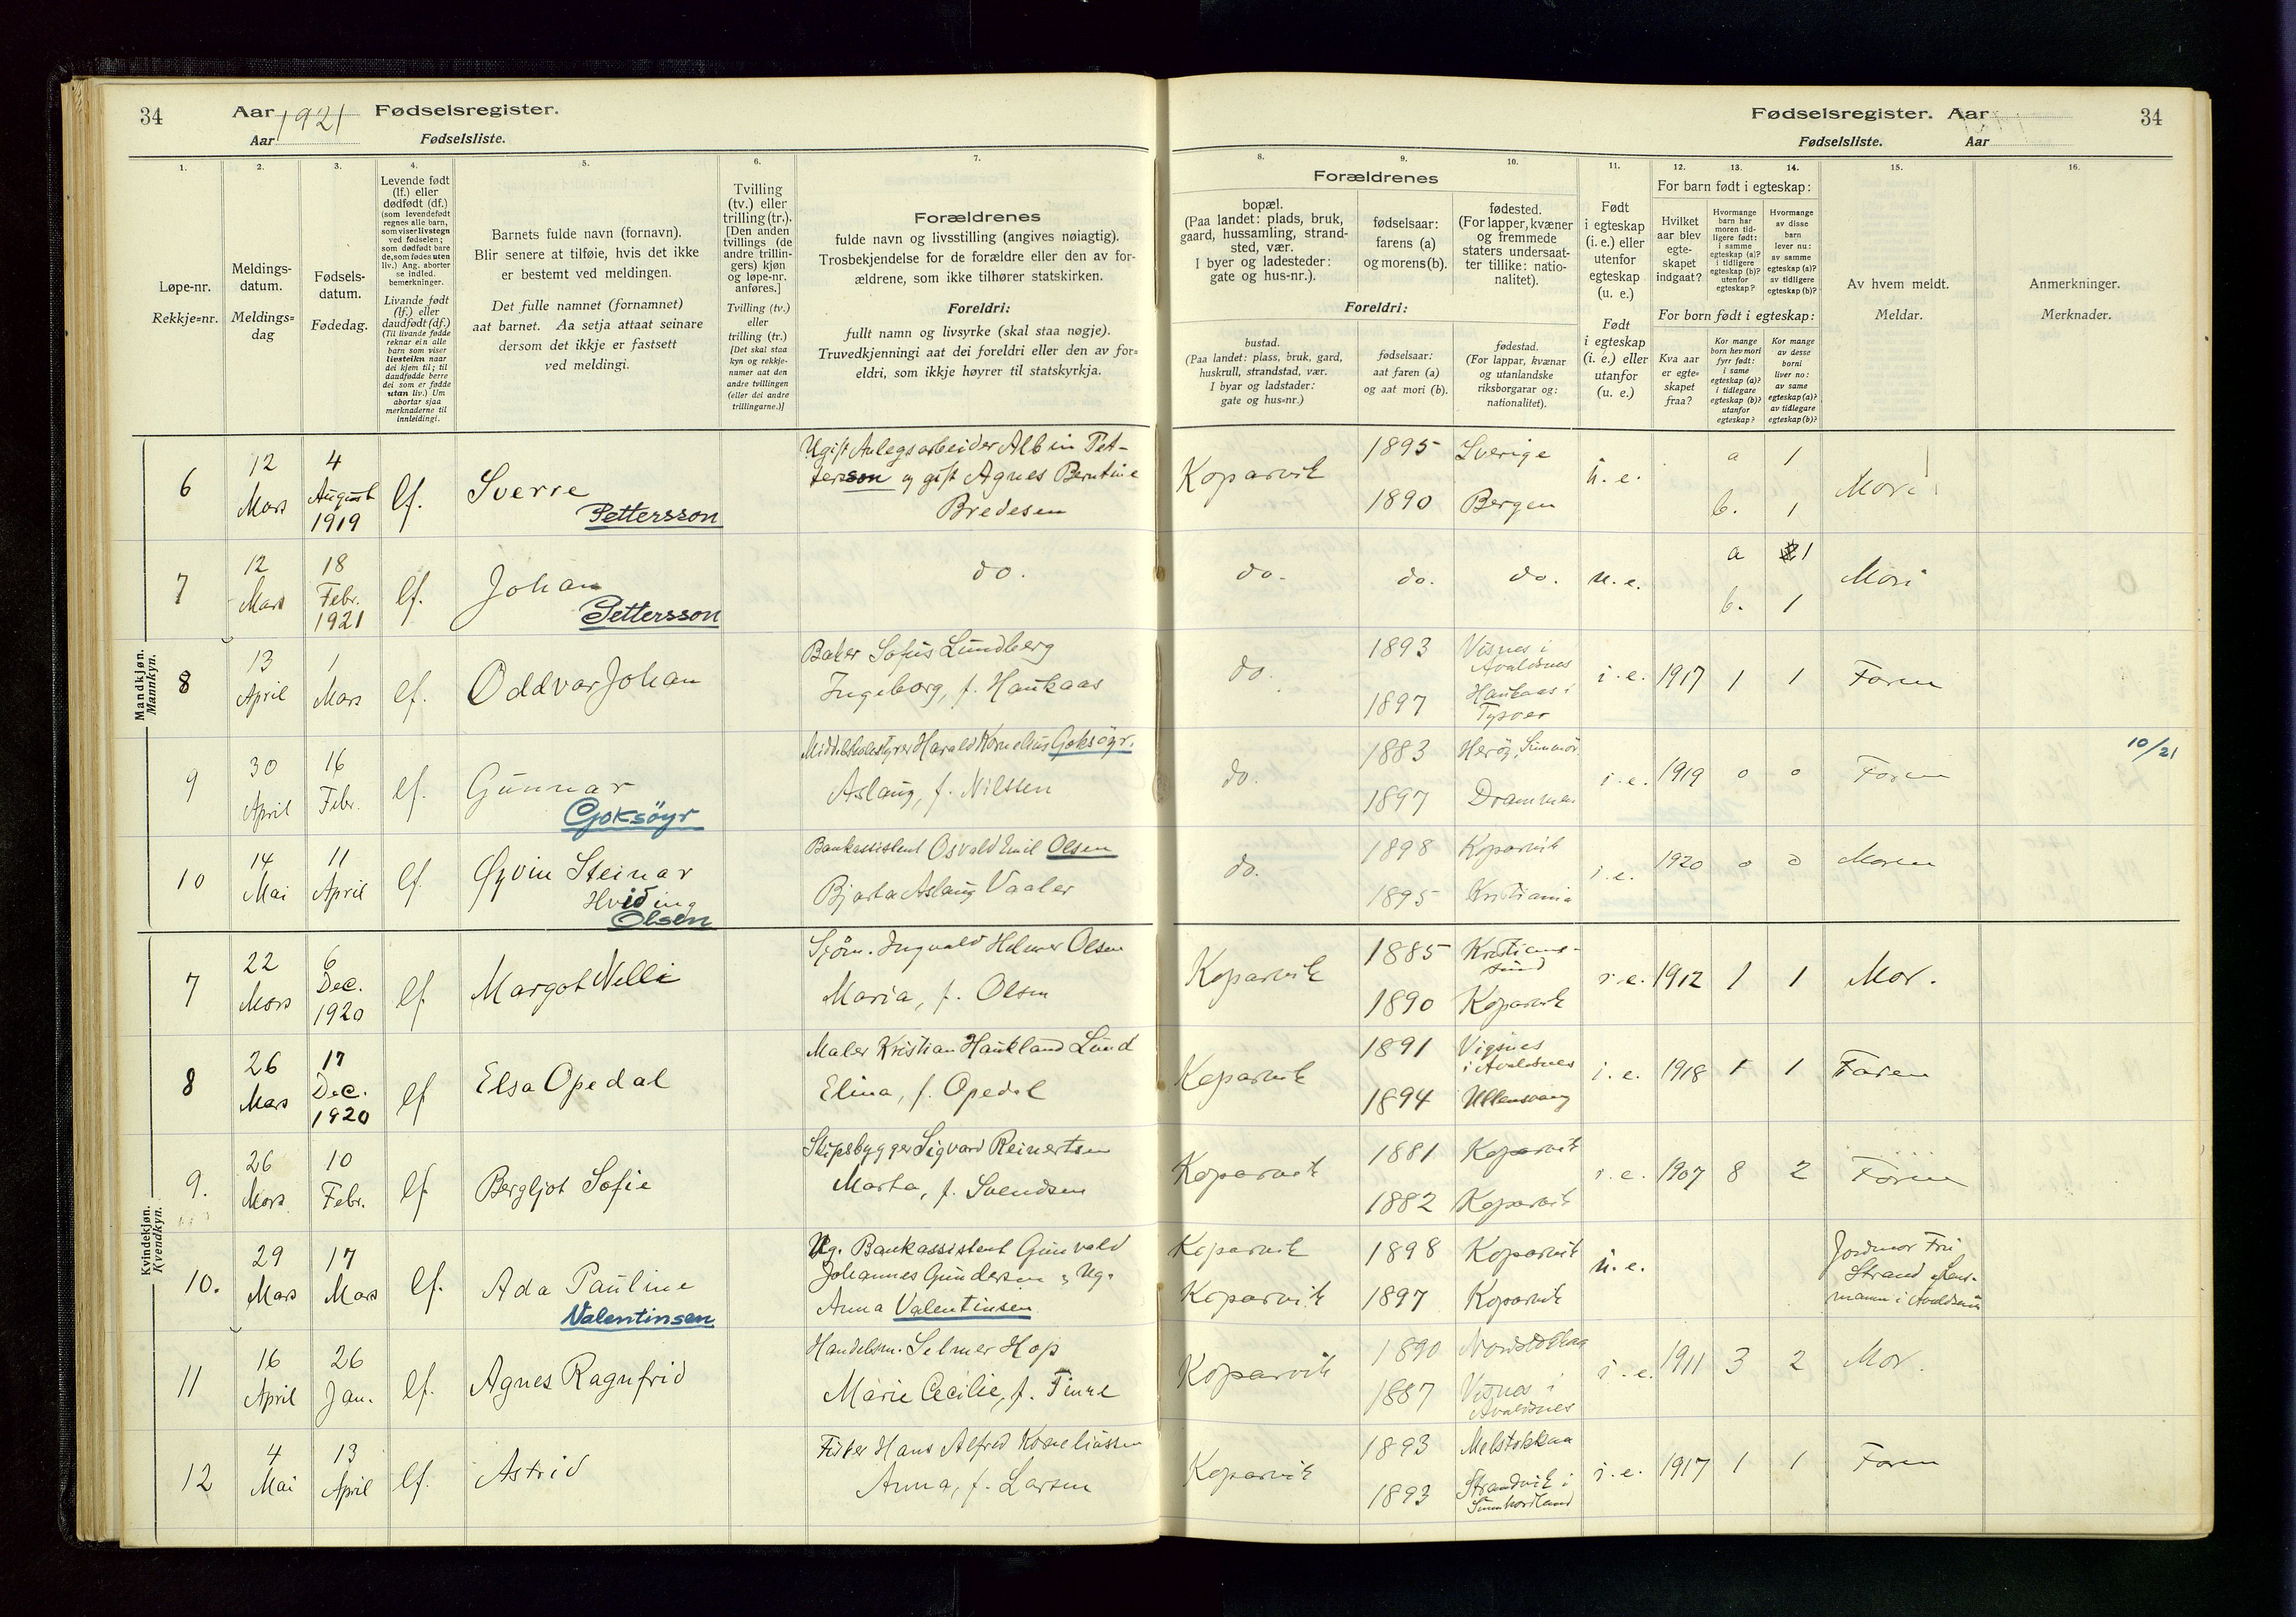 34
Aar 1921 Fødselsregister.
Aar Fødselsliste.
Fødselsregister. Aar
34
Fødselsliste. Aar
1. 2. 3. 4. 5. 6. 7. 8. 9. 10. 11. 12. 13. 14. 15. 16.
Løpe-nr.
Rekkje-nr.
Meldings-
datum.
Meldings-
dag
Fødsels-
datum.
Fødedag.
Levende født
(lf.) eller
dødfødt (df.)
(som levendefødt
regnes alle barn,
som viser livstegn
ved fødselen;
som dødfødt bare
de, som fødes uten
liv.) Ang. aborter
se indled.
bemerkninger.
Livande født
(lf.) eller
daudfødt (df.)
(Til livande fødde
reknar ein alle
barn som viser
livsteikn naar
dei kjem til; til
daudfødde berre
dei som er fødde
utan liv.) Um
abortar sjaa
merknaderne til
innleidingi.
Barnets fulde navn (fornavn).
Blir senere at tilføie, hvis det ikke
er bestemt ved meldingen.
Det fulle namnet (fornamnet)
aat barnet. Aa setja attaat seinare
dersom det ikkje er fastsett
ved meldingi.
Tvilling
(tv.) eller
trilling (tr.).
[Den anden
tvillings (de
andre trillin-
gers) kjøn
og løpe-nr.
anføres.]
Tvilling (tv.)
eller
trilling (tr.)
[Det skal staa
kyn og rekkje-
numer aat den
andre tvillingen
(eller dei andre
trillingarne.)]
Forældrenes
fulde navn og livsstilling (angives nøiagtig).
Trosbekjendelse for de forældre eller den av for-
ældrene, som ikke tilhører statskirken.
Foreldri:
fullt namn og livsyrke (skal staa nøgje).
Truvedkjenningi aat dei foreldri eller den av for-
eldri, som ikkje høyrer til statskyrkja.
Forældrenes
bopæl.
(Paa landet: plads, bruk,
gaard, hussamling, strand-
sted, vær.
I byer og ladesteder:
gate og hus-nr.).
fødselsaar:
farens (a)
og morens (b).
fødested.
(For lapper, kvæner
og fremmede
staters undersaat-
ter tillike: natio-
nalitet).
Foreldri:
bustad.
(Paa landet: plass, bruk, gard,
huskrull, strandstad, vær.
I byar og ladstader:
gate og hus-nr.)
fødselsaar:
aat faren (a)
og aat mori (b).
fødestad.
(For lappar, kvænar
og utanlandske
riksborgarar og:
nationalitet).
Født
i egteskap
(i. e.) eller
utenfor
egteskap
(u. e.)
Født
i egteskap
(i. e.) eller
utanfor
(u. e.)
For barn født i egteskap:
Hvilket
aar blev
egte-
skapet
indgaat?
Hvormange
barn har
moren tid-
ligere født:
i samme
egteskap (a)?
i tidligere
egteskap (b)?
utenfor
egteskap?
Hvormange
av disse
barn
lever nu:
av samme
egteskap (a)?
av tidligere
egteskap (b)?
For born født i egteskap:
Kva aar
er egte-
skapet
fraa?
Kor mange
born hev mori
fyrr født:
i same
egteskap (a)?
i tidlegare
egteskap (b)?
utanfor
egteskap?
Kor mange
av desse
borni
liver no:
av same
egteskap (a)?
av tidlegare
egteskap (b)?
Av hvem meldt.
Meldar.
Anmerkninger.
Merknader.
Mandkjøn.
Mannkyn.
6 12 Mars 4 August 1919 lf. Sverre Pettersson
Ugift Anlegsarbeider Albin Pet-
tersson og gift Agnes Berntine
Bredesen
Koparvik 1895 Sverige u. e. a 1 Mori
1890 Bergen b. 1
7 12 Mars 18 Febr. 1921 lf. Johan Pettersson
do. do. do. do. u. e. a 1 Mori
b. 1
8 13 April 1 Mars lf. Oddvar Johan
Baker Sofus Lundberg
Ingeborg, f. Haukaas
do. 1893 Visnes i Avaldsnes i. e. 1917 1 1 Faren
1897 Haukaas i Tysvær
9 30 April 16 Febr. lf. Gunnar Goksöyr
Middelskolestyrer Harald Kornelius Goksöyr.
Aslaug, f. Nilssen
do. 1883 Herøy, Sunnmør i. e. 1919 0 0 Faren 10/21
1897 Drammen
10 14 Mai 11 April lf. Øyvin Steinar Hviding Olsen
Bankassistent Osvald Emil Olsen
Bjarta Aslaug Vaaler
do. 1898 Koparvik i. e. 1920 0 0 Moren
1895 Kristiania
Kvindekjøn.
Kvendkyn.
7 22 Mars 6 Dec. 1920 lf. Margot Nelli
Sjöm. Ingvald Helmer Olsen
Maria, f. Olsen
Koparvik 1885 Kristians-
sund i. e. 1912 1 1 Mor.
1890 Koparvik
8 26 Mars 17 Dec. 1920 lf Elsa Opedal
Maler Kristian Haukland Lund
Elina, f. Opedal
Koparvik 1891 Vigsnes i Avaldsnes i. e. 1918 1 1 Faren
1894 Ullensvang
9. 26 Mars 10 Febr. lf Bergljot Sofie
Skipsbygger Sigvard Reinertsen
Marta, f. Svendsen
Koparvik 1881 Koparvik i. e. 1907 8 2 Faren
1882 Koparvik
10. 29 Mars 17 Mars lf. Ada Pauline Valentinsen
Ug. Bankassistent Gunvald
Johannes Gundersen & Ug.
Anna Valentinsen
Koparvik 1898 Koparvik u. e. Jordmor Fru
Koparvik 1897 Koparvik Strand
i Avaldsnes
11 16 April 26 Jan. lf. Agnes Ragnfrid
Handelsm. Selmer Hop
Marie Cecilie, f. Finne
Koparvik 1890 i. e. 1911 3 2 Mor.
1887 Visnes i Avaldsnes
12 4 Mai 13 April lf. Astrid
Fisker Hans Alfred Korneliussen
Anna, f. Larsen
Koparvik 1893 Melstokkaa i. e. 1917 1 1 Faren
1893 Strandvik i Sunnhordland